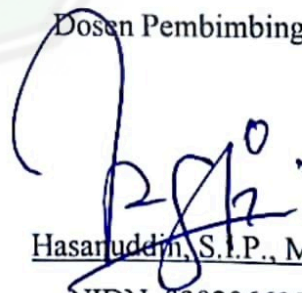 Dosen Pembimbing
Hasanuddin, S.I.P., M
NIDN.